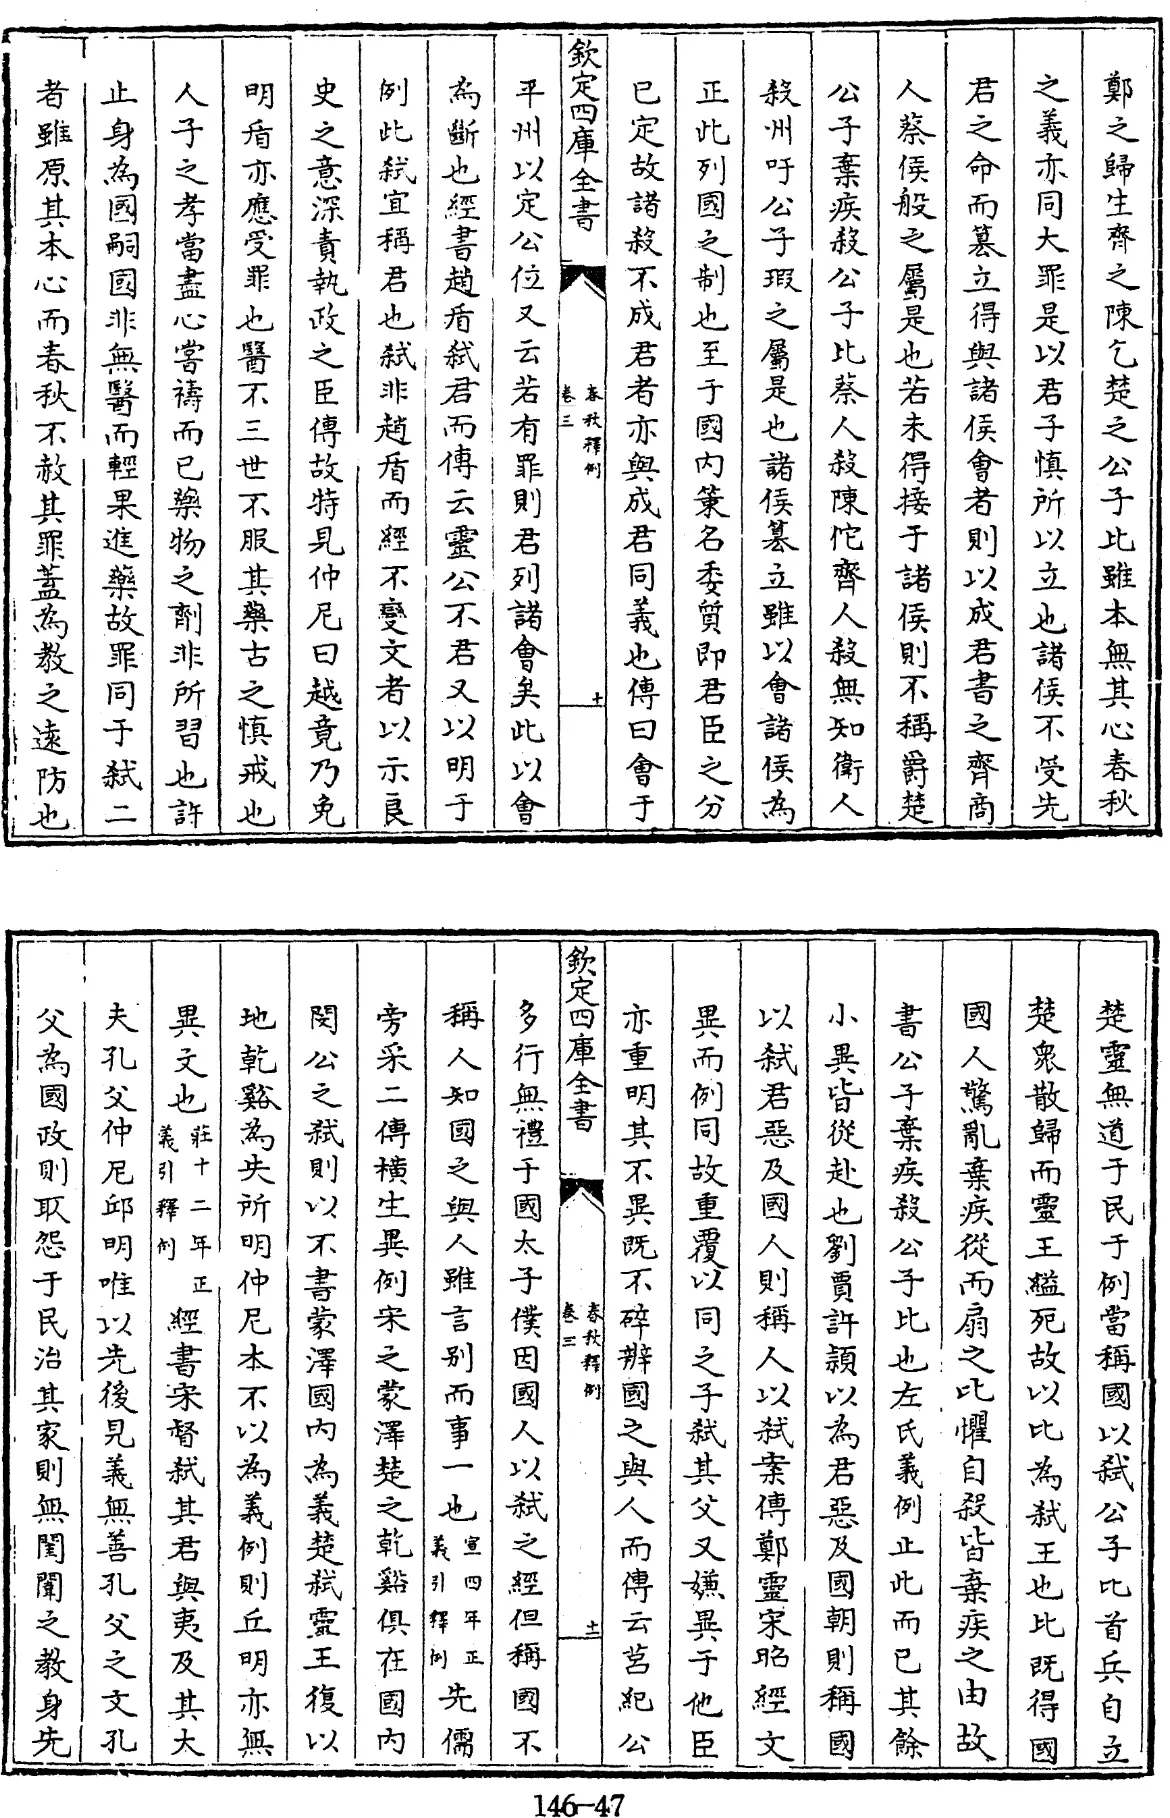 鄭之歸生齊之陳乞楚之公子比雖本無其心春秋
之義亦同大罪是以君子慎所以立也諸侯不受先
君之命而篡立得與諸侯會者則以成君書之齊商
人蔡侯般之屬是也若未得接于諸侯則不稱爵楚
公子棄疾殺公子比蔡人殺陳佗齊人殺無知衛人
殺州吁公子瑕之屬是也諸侯篡立雖以會諸侯為
正此列國之制也至于國內策名委質即君臣之分
已定故諸殺不成君者亦與成君同義也傳曰會于
欽定四庫全書
春秋釋例
卷三
十
平州以定公位又云若有罪則君列諸會矣此以會
為斷也經書趙盾弒君而傳云靈公不君又以明于
例此弒宜稱君也弒非趙盾而經不變文者以示良
史之意深責執政之臣傳故特見仲尼曰越竟乃免
明盾亦應受罪也醫不三世不服其藥古之慎戒也
人子之孝當盡心嘗禱而已藥物之劑非所習也許
止身為國嗣國非無醫而輕果進藥故罪同于弒二
者雖原其本心而春秋不赦其罪蓋為教之遠防也
楚靈無道于民于例當稱國以弒公子比首兵自立
楚眾散歸而靈王縊死故以比為弒王也比既得國
國人驚亂棄疾從而扇之比懼自殺皆棄疾之由故
書公子棄疾殺公子比也左氏義例止此而已其餘
小異皆從赴也劉賈許潁以為君惡及國朝則稱國
以弒君惡及國人則稱人以弒案傳鄭靈宋昭經文
異而例同故重覆以同之子弒其父又嫌異于他臣
亦重明其不異既不碎辨國之與人而傳云莒紀公
欽定四庫全書
春秋釋例
卷三
十一
多行無禮于國太子僕因國人以弒之經但稱國不
稱人知國之與人雖言別而事一也宣四年正義引釋例先儒
旁采二傳橫生異例宋之蒙澤楚之乾谿俱在國內
閔公之弒則以不書蒙澤國內為義楚弒靈王復以
地乾谿為失所明仲尼本不以為義例則丘明亦無
異文也莊十二年正義引釋例經書宋督弒其君與夷及其大
夫孔父仲尼邱明唯以先後見義無善孔父之文孔
父為國政則取怨于民治其家則無閨闈之教身先
146-47